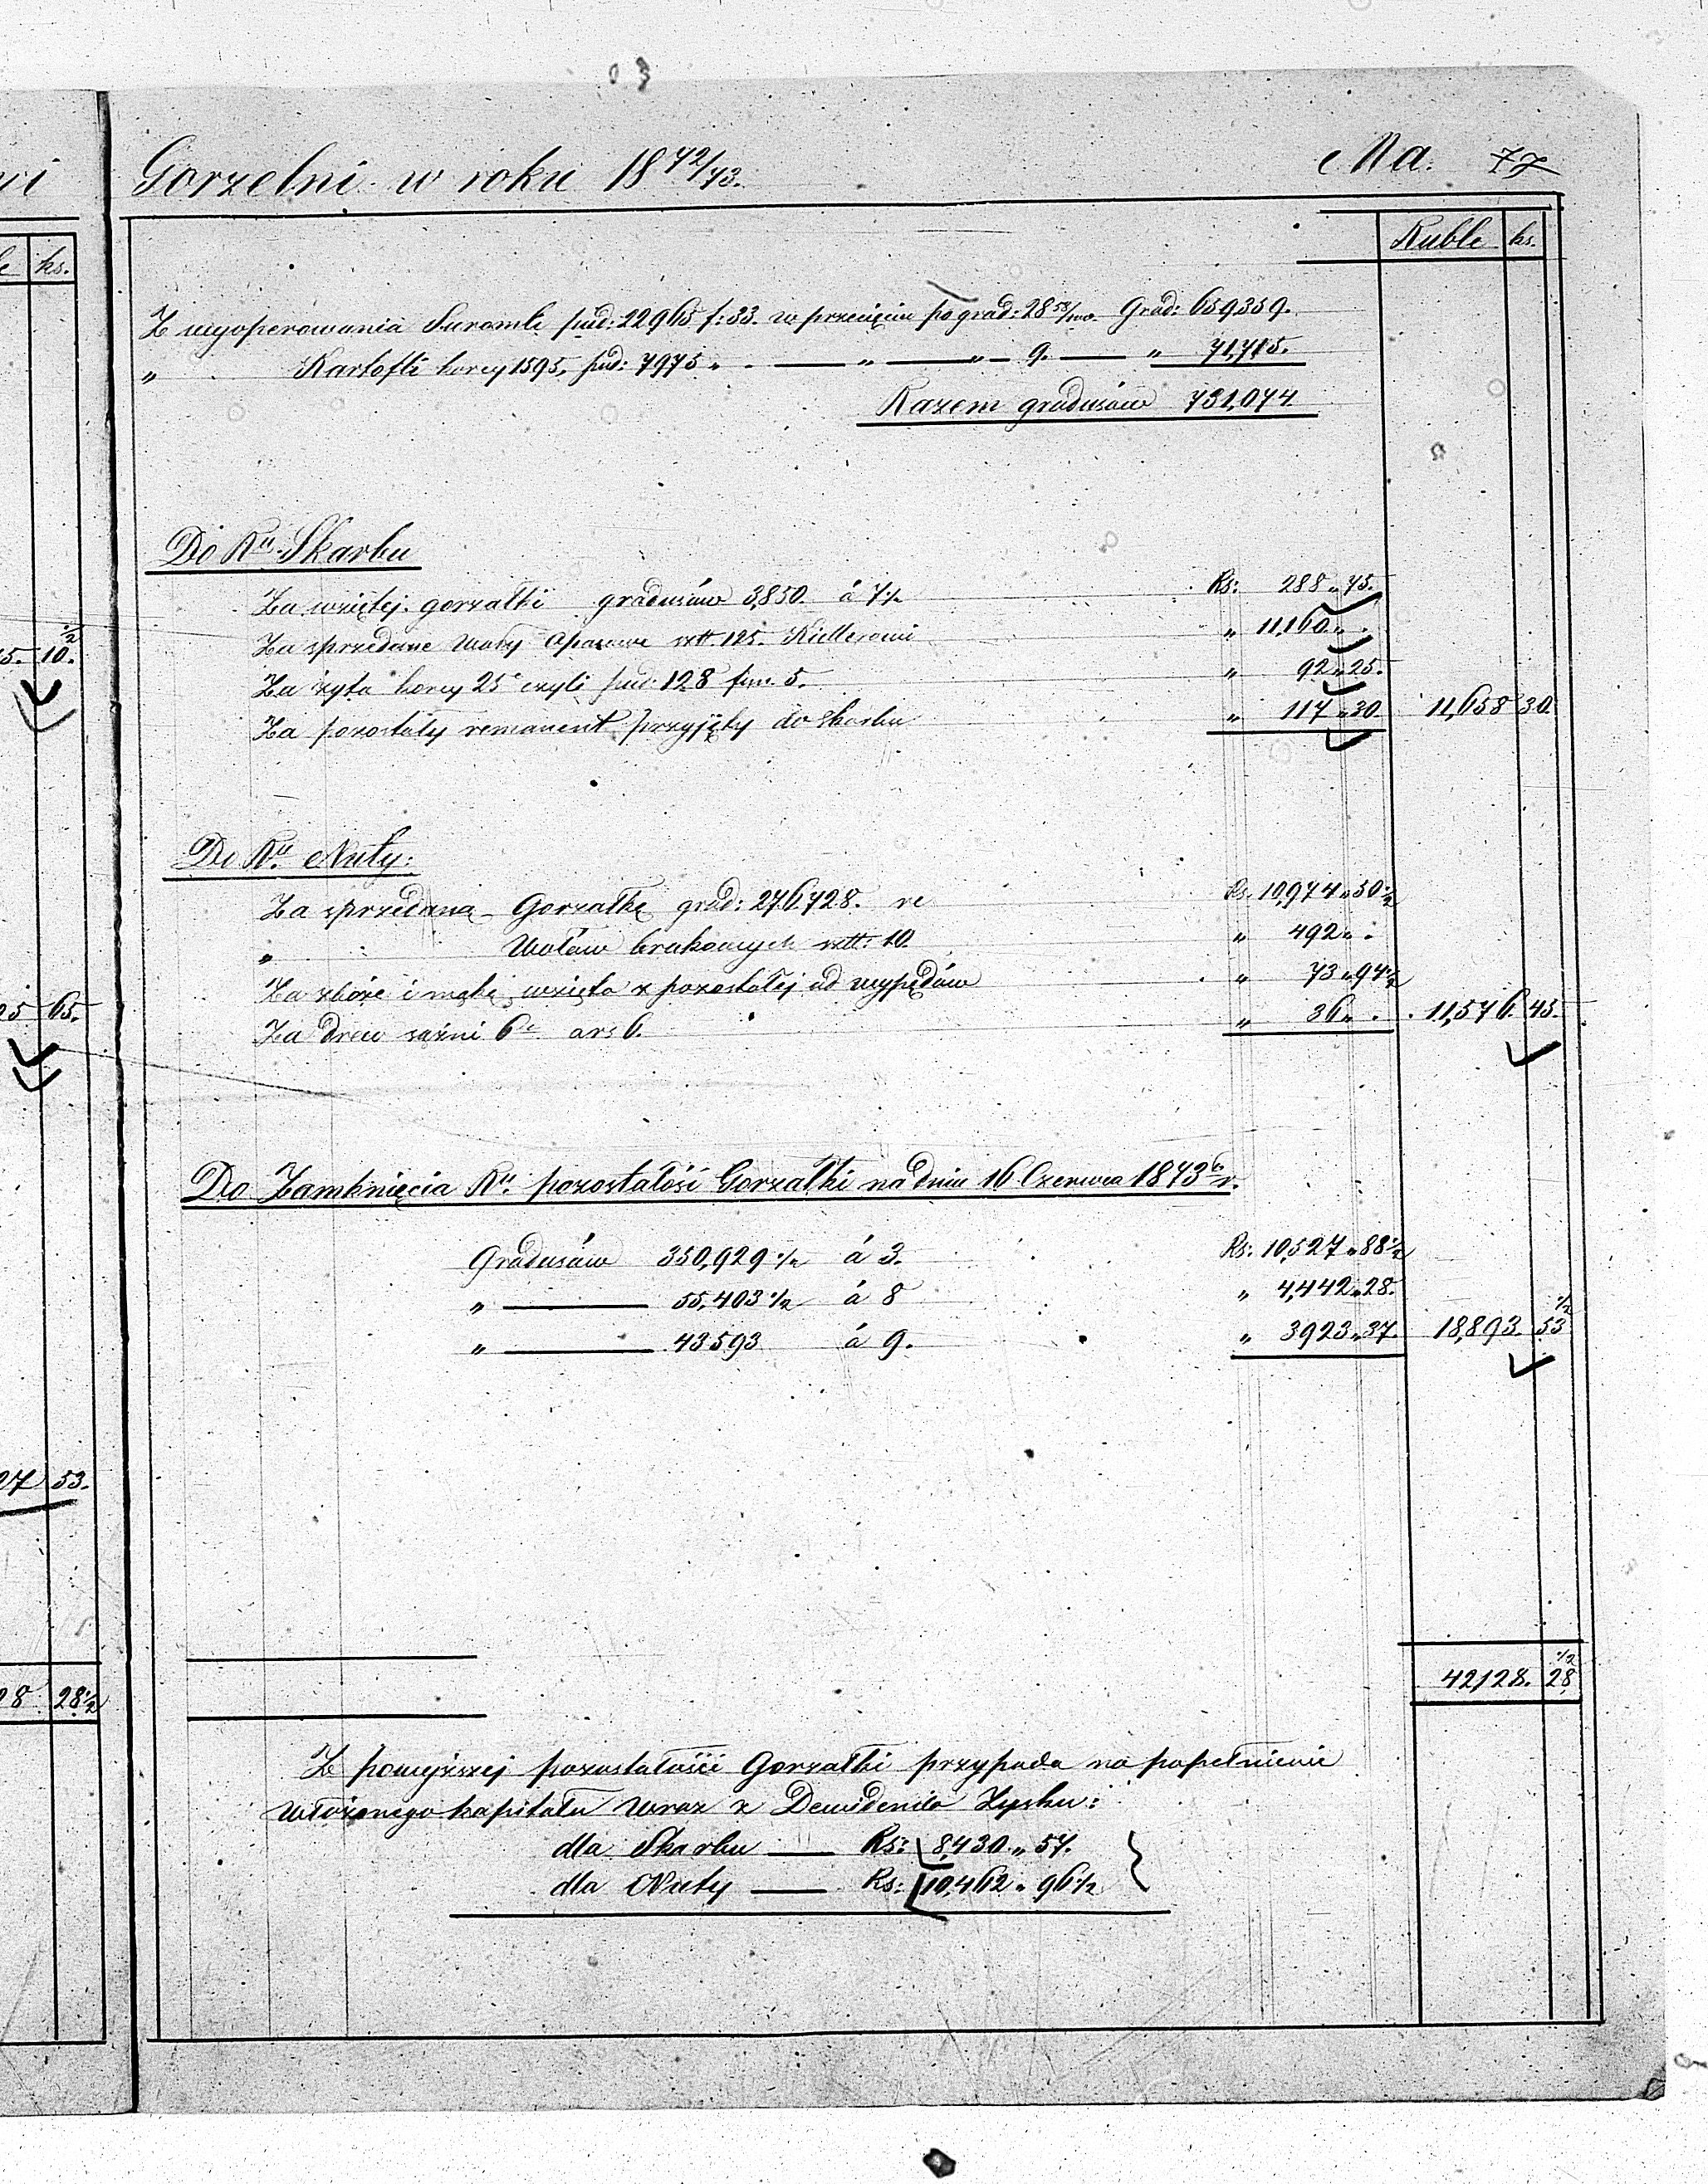 Gorzelni w roku 18 72/73. Ma. 77
Ruble ks.
Z wyoperowania Suromli pud: 22965 f: 33. w przecięciu po grad: 28 58/100 Grad: 659359.
„ Kartofli korcy 1595, pud: 7975 „ — „ — „ — 9. — „ 71,715.
Razem gradusów 731,074
Do Ru Skarbu
Za wziętej gorzałki gradusów 3,850. á 7½ Rs: 288 „ 75.
Za sprzedane Woły Opasowe szt. 125. „ 11,160 „ .
Za żyta korcy 25 czyli pud: 128 fun. 5. „ 92 „ 25.
Za pozostały remanent przyjęty do skarbu „ 117 „ 30. 11,658 30.
Do Ru Nuty:
Za sprzedaną Gorzałkę grad: 276,728. Rs. 10,974 „ 50½
„ Wołów brakowych szt: 10. „ 492 „ .
Za zboże i mąkę wzięta z pozostałej od wypędów „ 73 „ 94½
Za drew sążni 6 ars 6. „ 36 „ . 11,576. 45.
Do Zamknięcia Ru pozostałość Gorzałki na dniu 16 Czerwca 1873 r.
Gradusów 350,929½ á 3. Rs: 10,527 „ 88½
„ — 55,403½ á 8 „ 4,442 „ 28.
„ — 43593 á 9. „ 3923 „ 37. 18,893. 53 ½
42128. 28 ½
Z powyższej pozostałości Gorzałki przypada na popełnienie
włożonego kapitału wraz z Dewidendo Zysku:
dla Skarbu — Rs: 8,430 „ 57.
dla Nuty — Rs: 10,462 „ 96½
ks.
5. 10. ½
25 65.
27 53.
28 28½